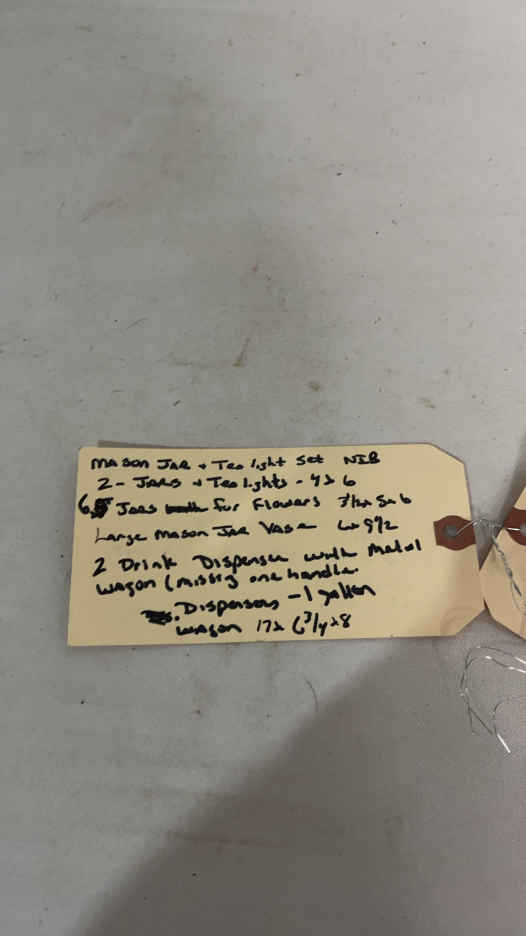 Mason Jar + Tea light set NIB
2 - Jars + Tea lights - 4 x 6
6 Jars for Flowers 3 1/2 x 5 x 6
Large Mason Jar Vase 6 x 9 1/2
2 Drink Dispenser with Metal
wagon (missing one handle.
Dispensers - 1 gallon
wagon 17 x 6 3/4 x 8